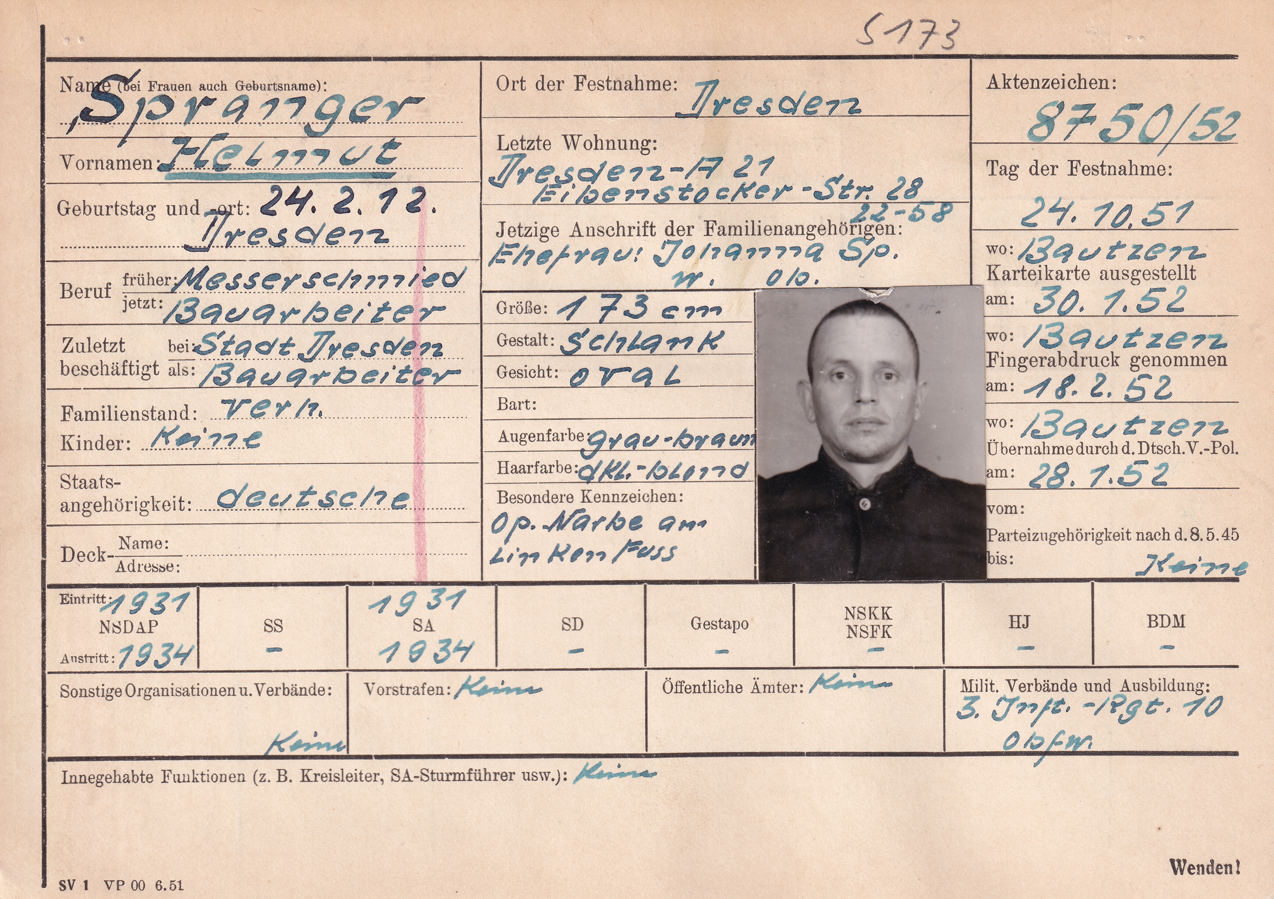 S 173
Name (bei Frauen auch Geburtsname):
Spranger
Vornamen: Helmut
Geburtstag und -ort: 24. 2. 12.
Dresden
Beruf früher: Messerschmied
jetzt: Bauarbeiter
Zuletzt beschäftigt bei: Stadt Dresden
als: Bauarbeiter
Familienstand: verh.
Kinder: Keine
Staats-
angehörigkeit: deutsche
Deck- Name:
Adresse:
Ort der Festnahme: Dresden
Letzte Wohnung:
Dresden-A 21
Eibenstocker-Str. 28
22-58
Jetzige Anschrift der Familienangehörigen:
Ehefrau: Johanna Sp.
w. ob.
Größe: 173 cm
Gestalt: Schlank
Gesicht: oval
Bart:
Augenfarbe: grau-braun
Haarfarbe: dkl.-blond
Besondere Kennzeichen:
Op. Narbe am
linken Fuss
Aktenzeichen:
8750/52
Tag der Festnahme:
24. 10. 51
wo: Bautzen
Karteikarte ausgestellt
am: 30. 1. 52
wo: Bautzen
Fingerabdruck genommen
am: 18. 2. 52
wo: Bautzen
Übernahme durch d. Dtsch. V.-Pol.
am: 28. 1. 52
vom:
Parteizugehörigkeit nach d. 8. 5. 45
bis: Keine
Eintritt: 1931
NSDAP
Austritt: 1934
SS
-
1931
SA
1934
SD
-
Gestapo
-
NSKK
NSFK
-
HJ
-
BDM
-
Sonstige Organisationen u. Verbände:
Keine
Vorstrafen: Keine
Öffentliche Ämter: Keine
Milit. Verbände und Ausbildung:
3. Inft. -Rgt. 10
Obfw.
Innegehabte Funktionen (z. B. Kreisleiter, SA-Sturmführer usw.): Keine
Wenden!
SV 1 VP 00 6.51